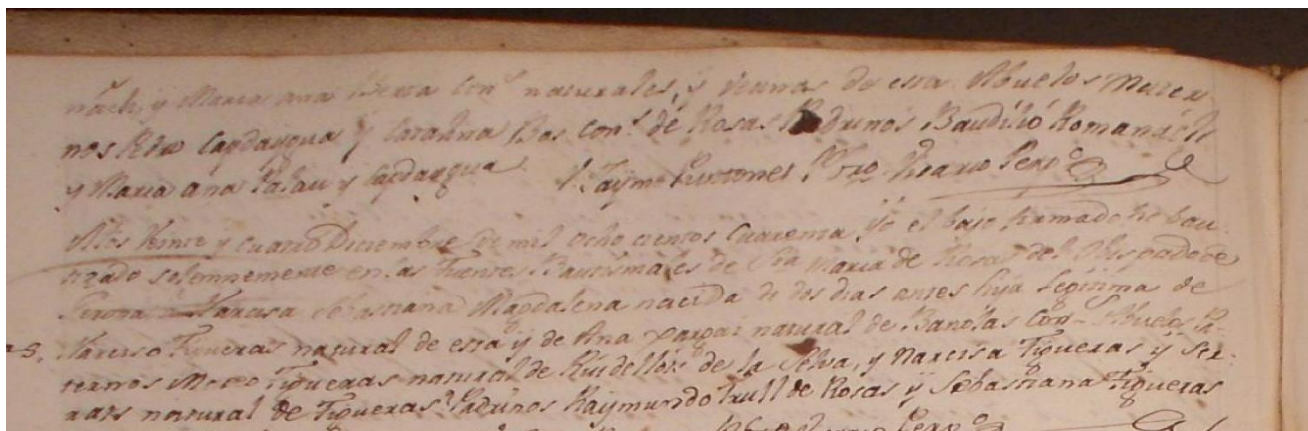 nach, y Maria ana Serra Con.s naturales, y vecinos de esta Abuelos Mater
nos Capdaigua y Catalina Bas con.s de Rosas Padrinos Baudilio Romanach
y Maria ana Palau y Capdaigua Jayme Pbro. Vicario Perp.o
A los Veinte y cuatro Diciembre de mil ocho cientos cuarenta Yo el bajo firmado he bau-
tizado solemnemente en las Fuentes Bautismales de Sta Maria de Rosas del Obispado de
Gerona a Narcisa Sebastiana Magdalena nacida de dos dias antes hija Legitima de
Narciso Figueras natural de esta y de Ana natural de Bañolas Con. Abuelos Pa-
ternos Figueras natural de Riudellots de la Selva, y Narcisa Figueras y Ser-
rats natural de Figueras Padrinos Raymundo Trull de Rosas y Sebastiana Figueras